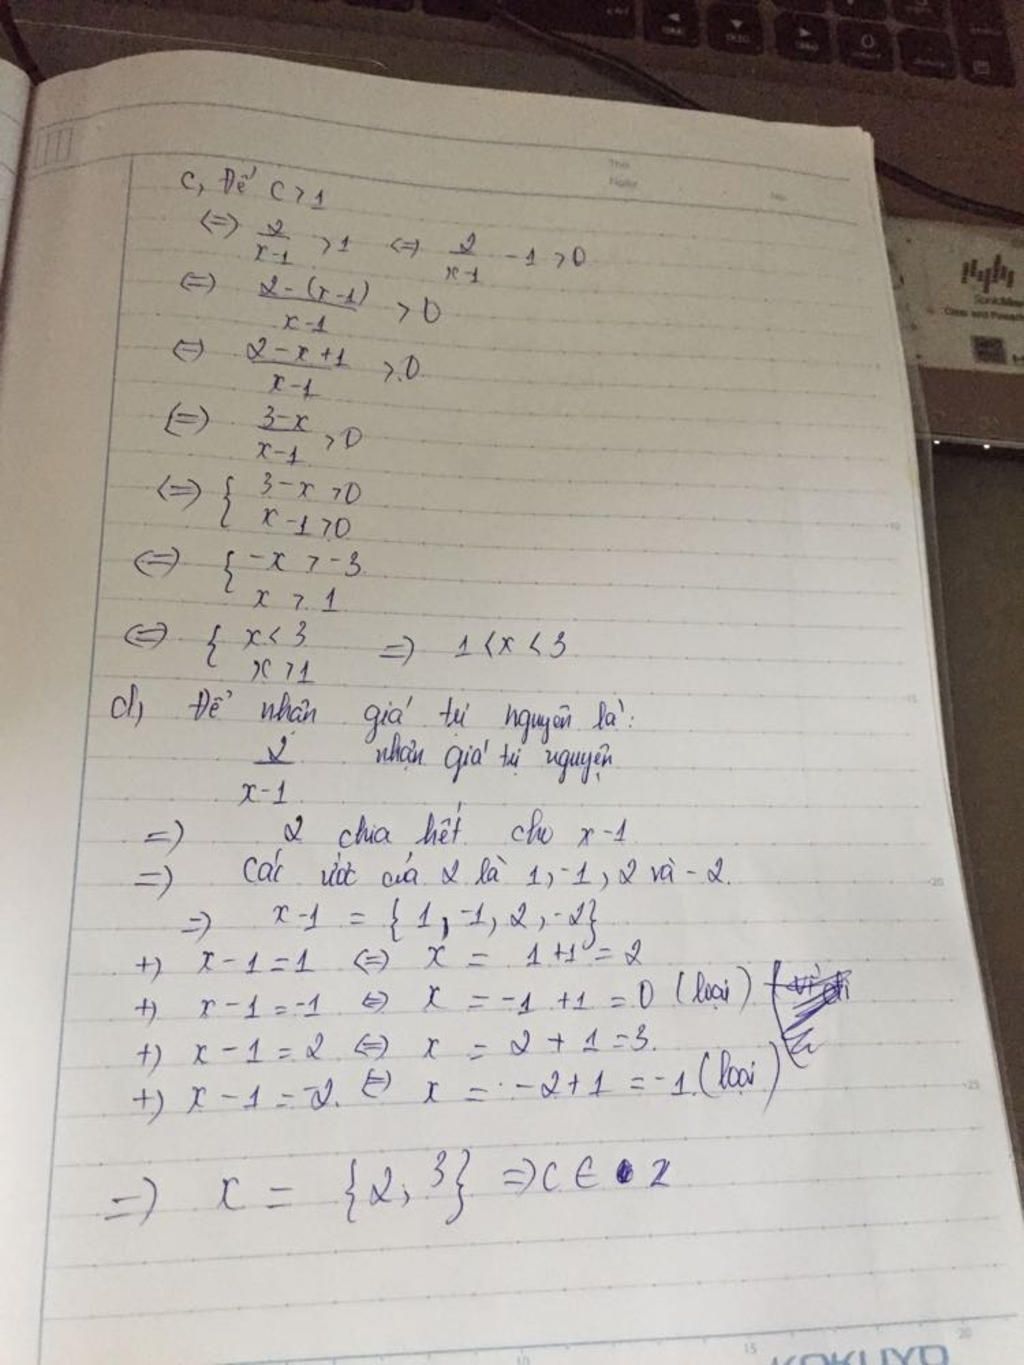 Thứ
Ngày
No.
c, Để C > 1
<=> 2/(x-1) > 1 <=> 2/(x-1) - 1 > 0
<=> (2-(x-1))/(x-1) > 0
<=> (2-x+1)/(x-1) > 0
<=> (3-x)/(x-1) > 0
<=> { 3-x > 0
x-1 > 0
<=> { -x > -3
x > 1
<=> { x < 3 => 1 < x < 3
x > 1
d, Để nhận giá trị nguyên là:
2/(x-1) nhận giá trị nguyên
=> 2 chia hết cho x-1
=> Các ước của 2 là 1, -1, 2 và -2.
=> x-1 = {1, -1, 2, -2}
+) x-1=1 <=> x = 1+1 = 2
+) x-1=-1 <=> x = -1+1=0 (loại)
+) x-1=2 <=> x = 2+1=3.
+) x-1=-2. <=> x = -2+1=-1.(loại)
=> x = {2; 3} => C ∈ Z
10
15
20
25
10
15
20
KOKUYO